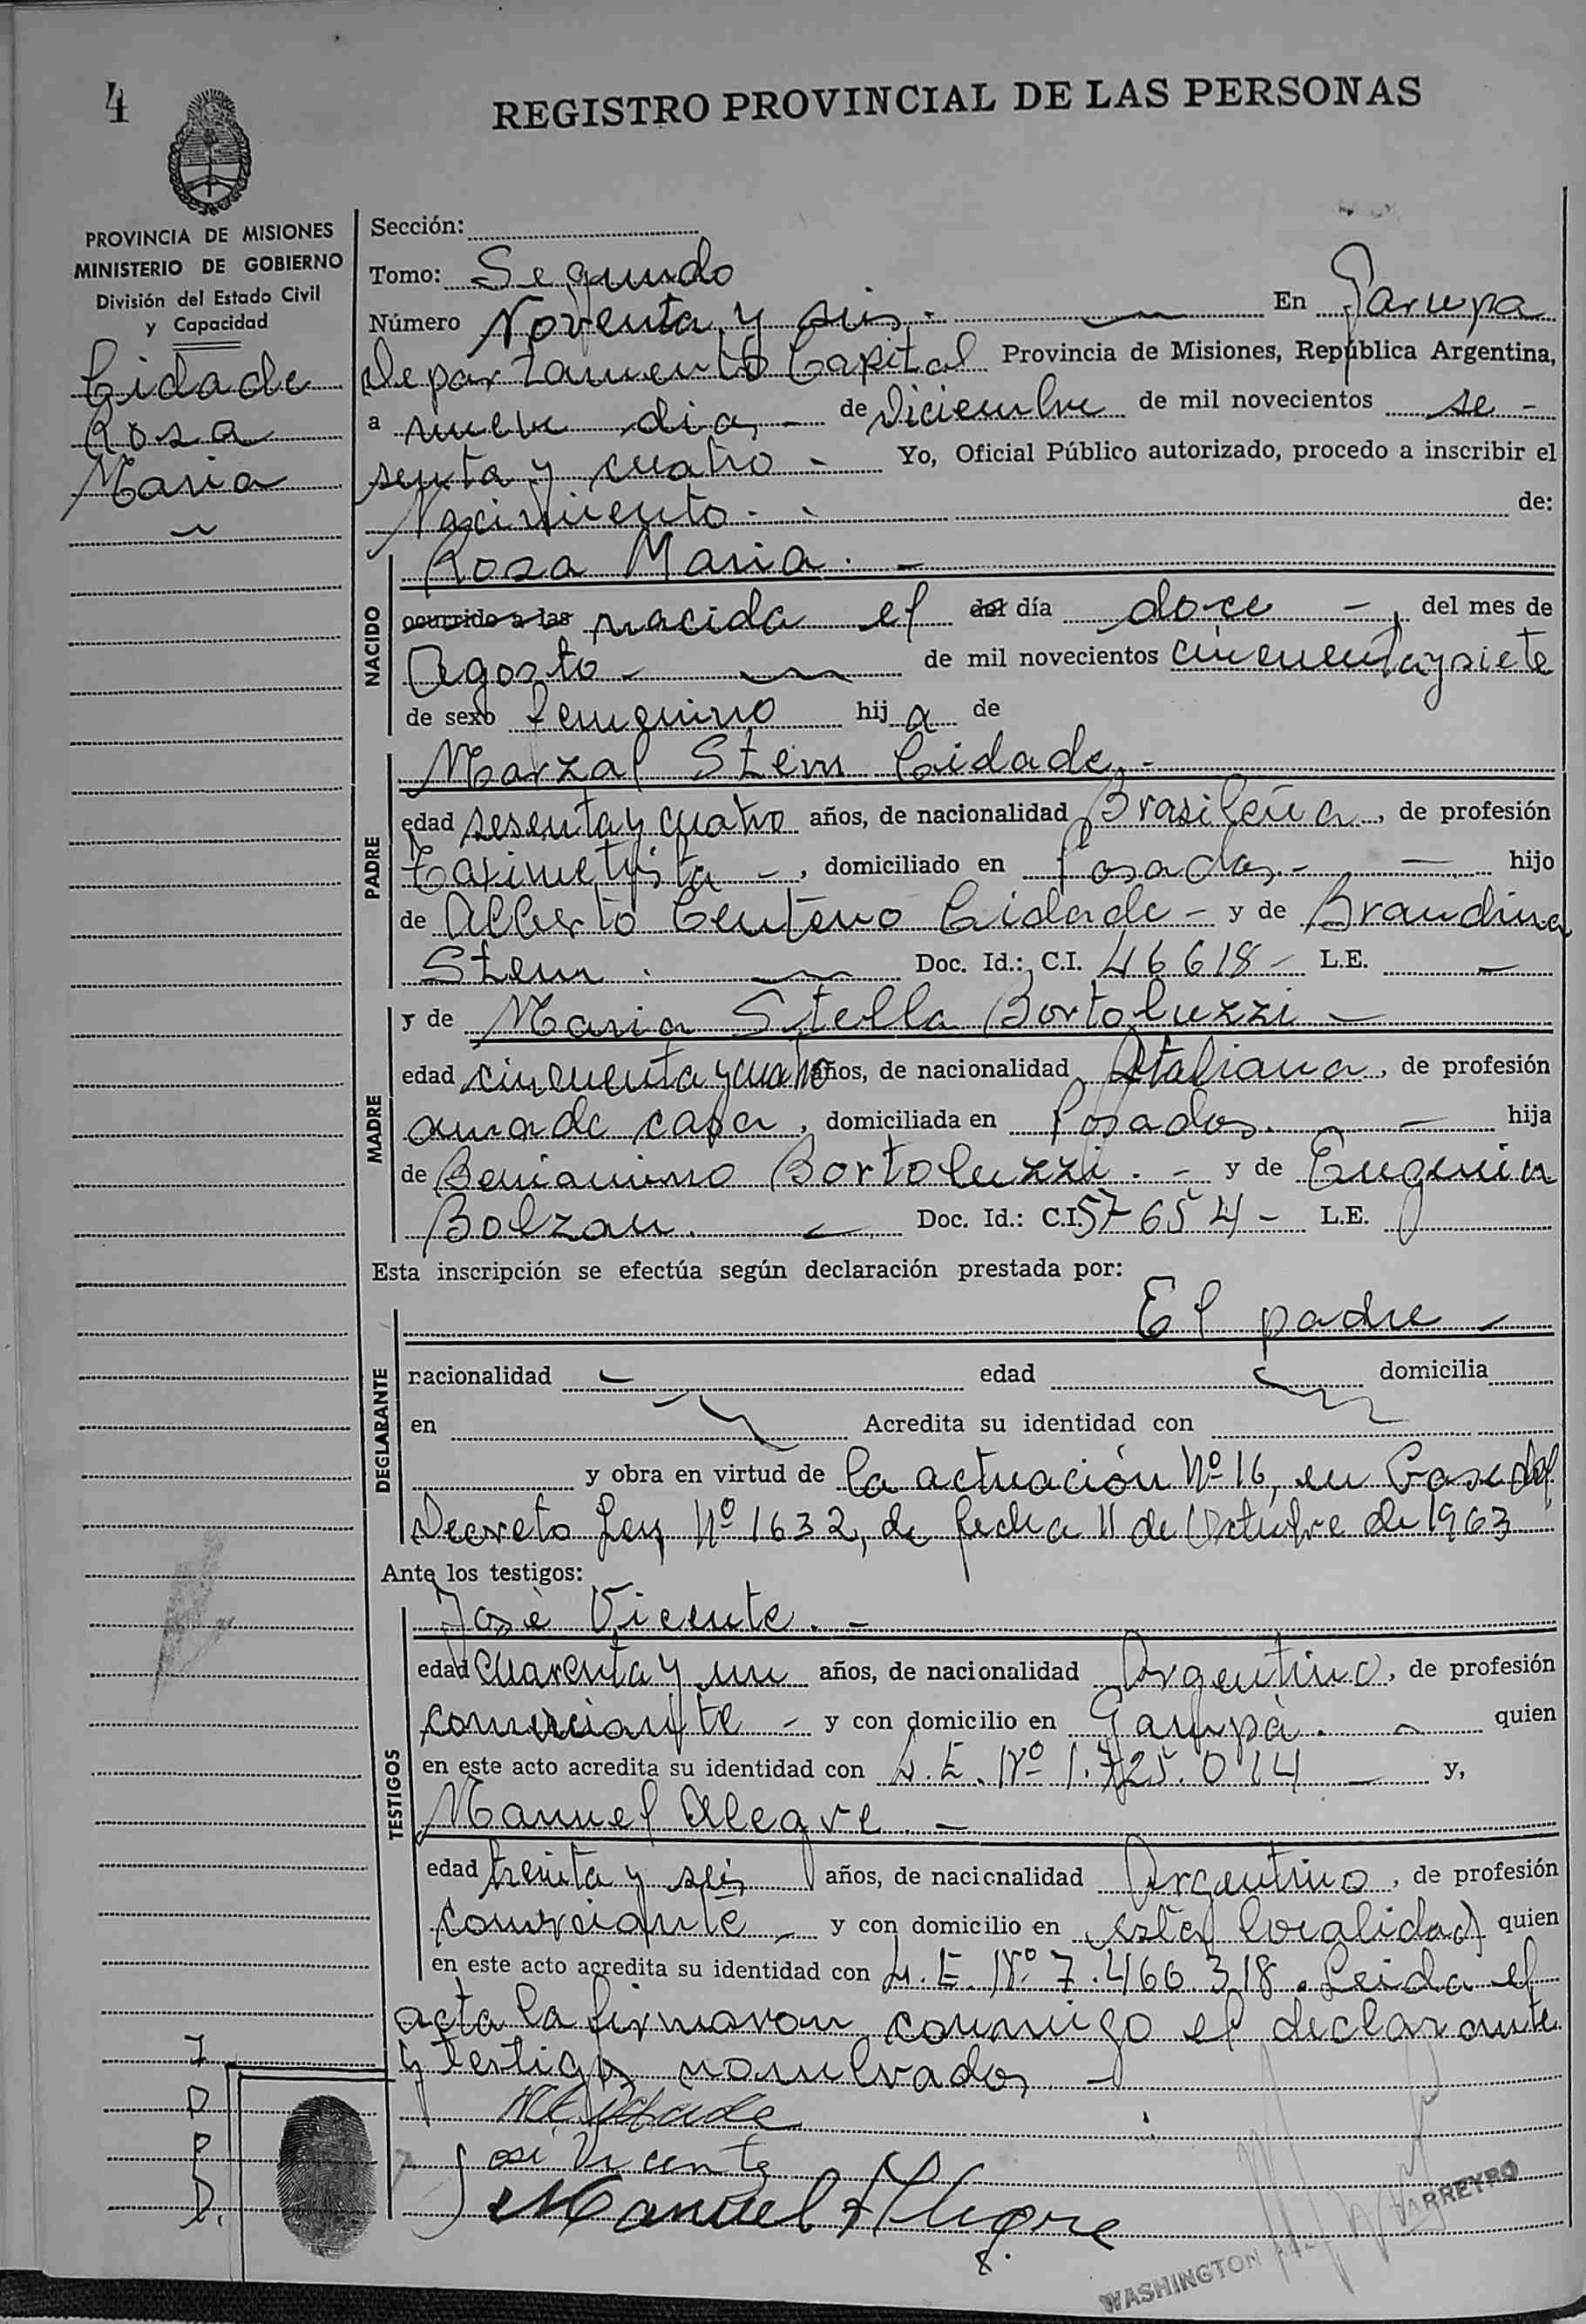 4
REGISTRO PROVINCIAL DE LAS PERSONAS
PROVINCIA DE MISIONES
MINISTERIO DE GOBIERNO
División del Estado Civil
y Capacidad
Cidade
Rosa
Maria
Sección:
Tomo: Segundo
Número Noventa y seis.- En Garupa
Departamento Capital Provincia de Misiones, República Argentina,
a nueve dia,- de Diciembre de mil novecientos se-
senta y cuatro - Yo, Oficial Público autorizado, procedo a inscribir el
Nacimiento.- de:
NACIDO
Rosa Maria.-
ocurrido a las nacida el del día doce -, del mes de
Agosto- de mil novecientos cincuentaysiete
de sexo femenino hija de
PADRE
Marzal Stern Cidade,-
edad sesenta y cuatro años, de nacionalidad Brasileña, de profesión
Taximetrista -, domiciliado en Posadas.- hijo
de Alberto Centeno Cidade - y de Brandina
Stern. Doc. Id.: C.I. 46618- L.E. -
MADRE
y de Maria Stella Bortoluzzi -
edad cincuenta y cuatro años, de nacionalidad Italiana, de profesión
ama de casa, domiciliada en Posadas. - hija
de Beniamino Bortoluzzi.- y de Eugenia
Bolzan. Doc. Id.: C.I. 57654- L.E.
Esta inscripción se efectúa según declaración prestada por:
DECLARANTE
El padre -
nacionalidad edad domicilia
en Acredita su identidad con
y obra en virtud de la actuación Nº 16, en Base del
Decreto Ley Nº 1632, de fecha 11 de Octubre de 1963
Ante los testigos:
TESTIGOS
José Vicente.-
edad cuarenta y un años, de nacionalidad Argentino, de profesión
comerciante - y con domicilio en Garupá. quien
en este acto acredita su identidad con L.E. Nº 1.725.014 - y,
Manuel Alegre.-
edad treinta y seis años, de nacionalidad Argentino, de profesión
comerciante - y con domicilio en esta localidad quien
en este acto acredita su identidad con L.E. Nº 7.466.318. Leida el
acta la firmaron conmigo el declarante
y testigos nombrados.-
I
D
P
D.
José Vicente
Manuel Alegre
WASHINGTON BARREYRO